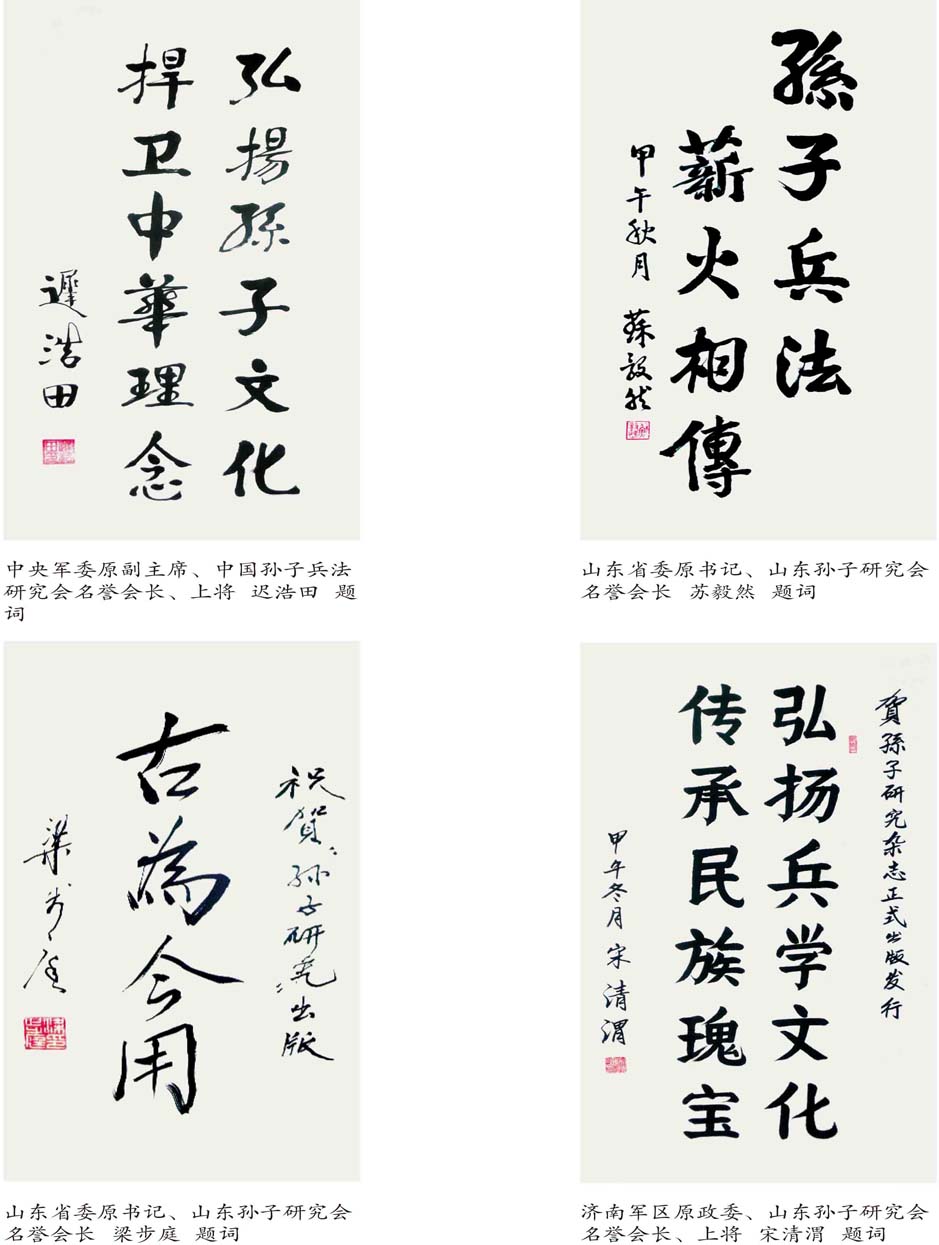 弘揚孫子文化
捍卫中華理念
遲浩田
中央军委原副主席、中国孙子兵法
研究会名誉会长、上将 迟浩田 题
词
孫子兵法
薪火相傳
甲午秋月 蘇毅然
山东省委原书记、山东孙子研究会
名誉会长 苏毅然 题词
祝賀“孙子研究”出版
古為今用
梁步庭
山东省委原书记、山东孙子研究会
名誉会长 梁步庭 题词
賀孫子研究杂志正式出版发行
弘扬兵学文化
传承民族瑰宝
甲午冬月 宋清渭
济南军区原政委、山东孙子研究会
名誉会长、上将 宋清渭 题词